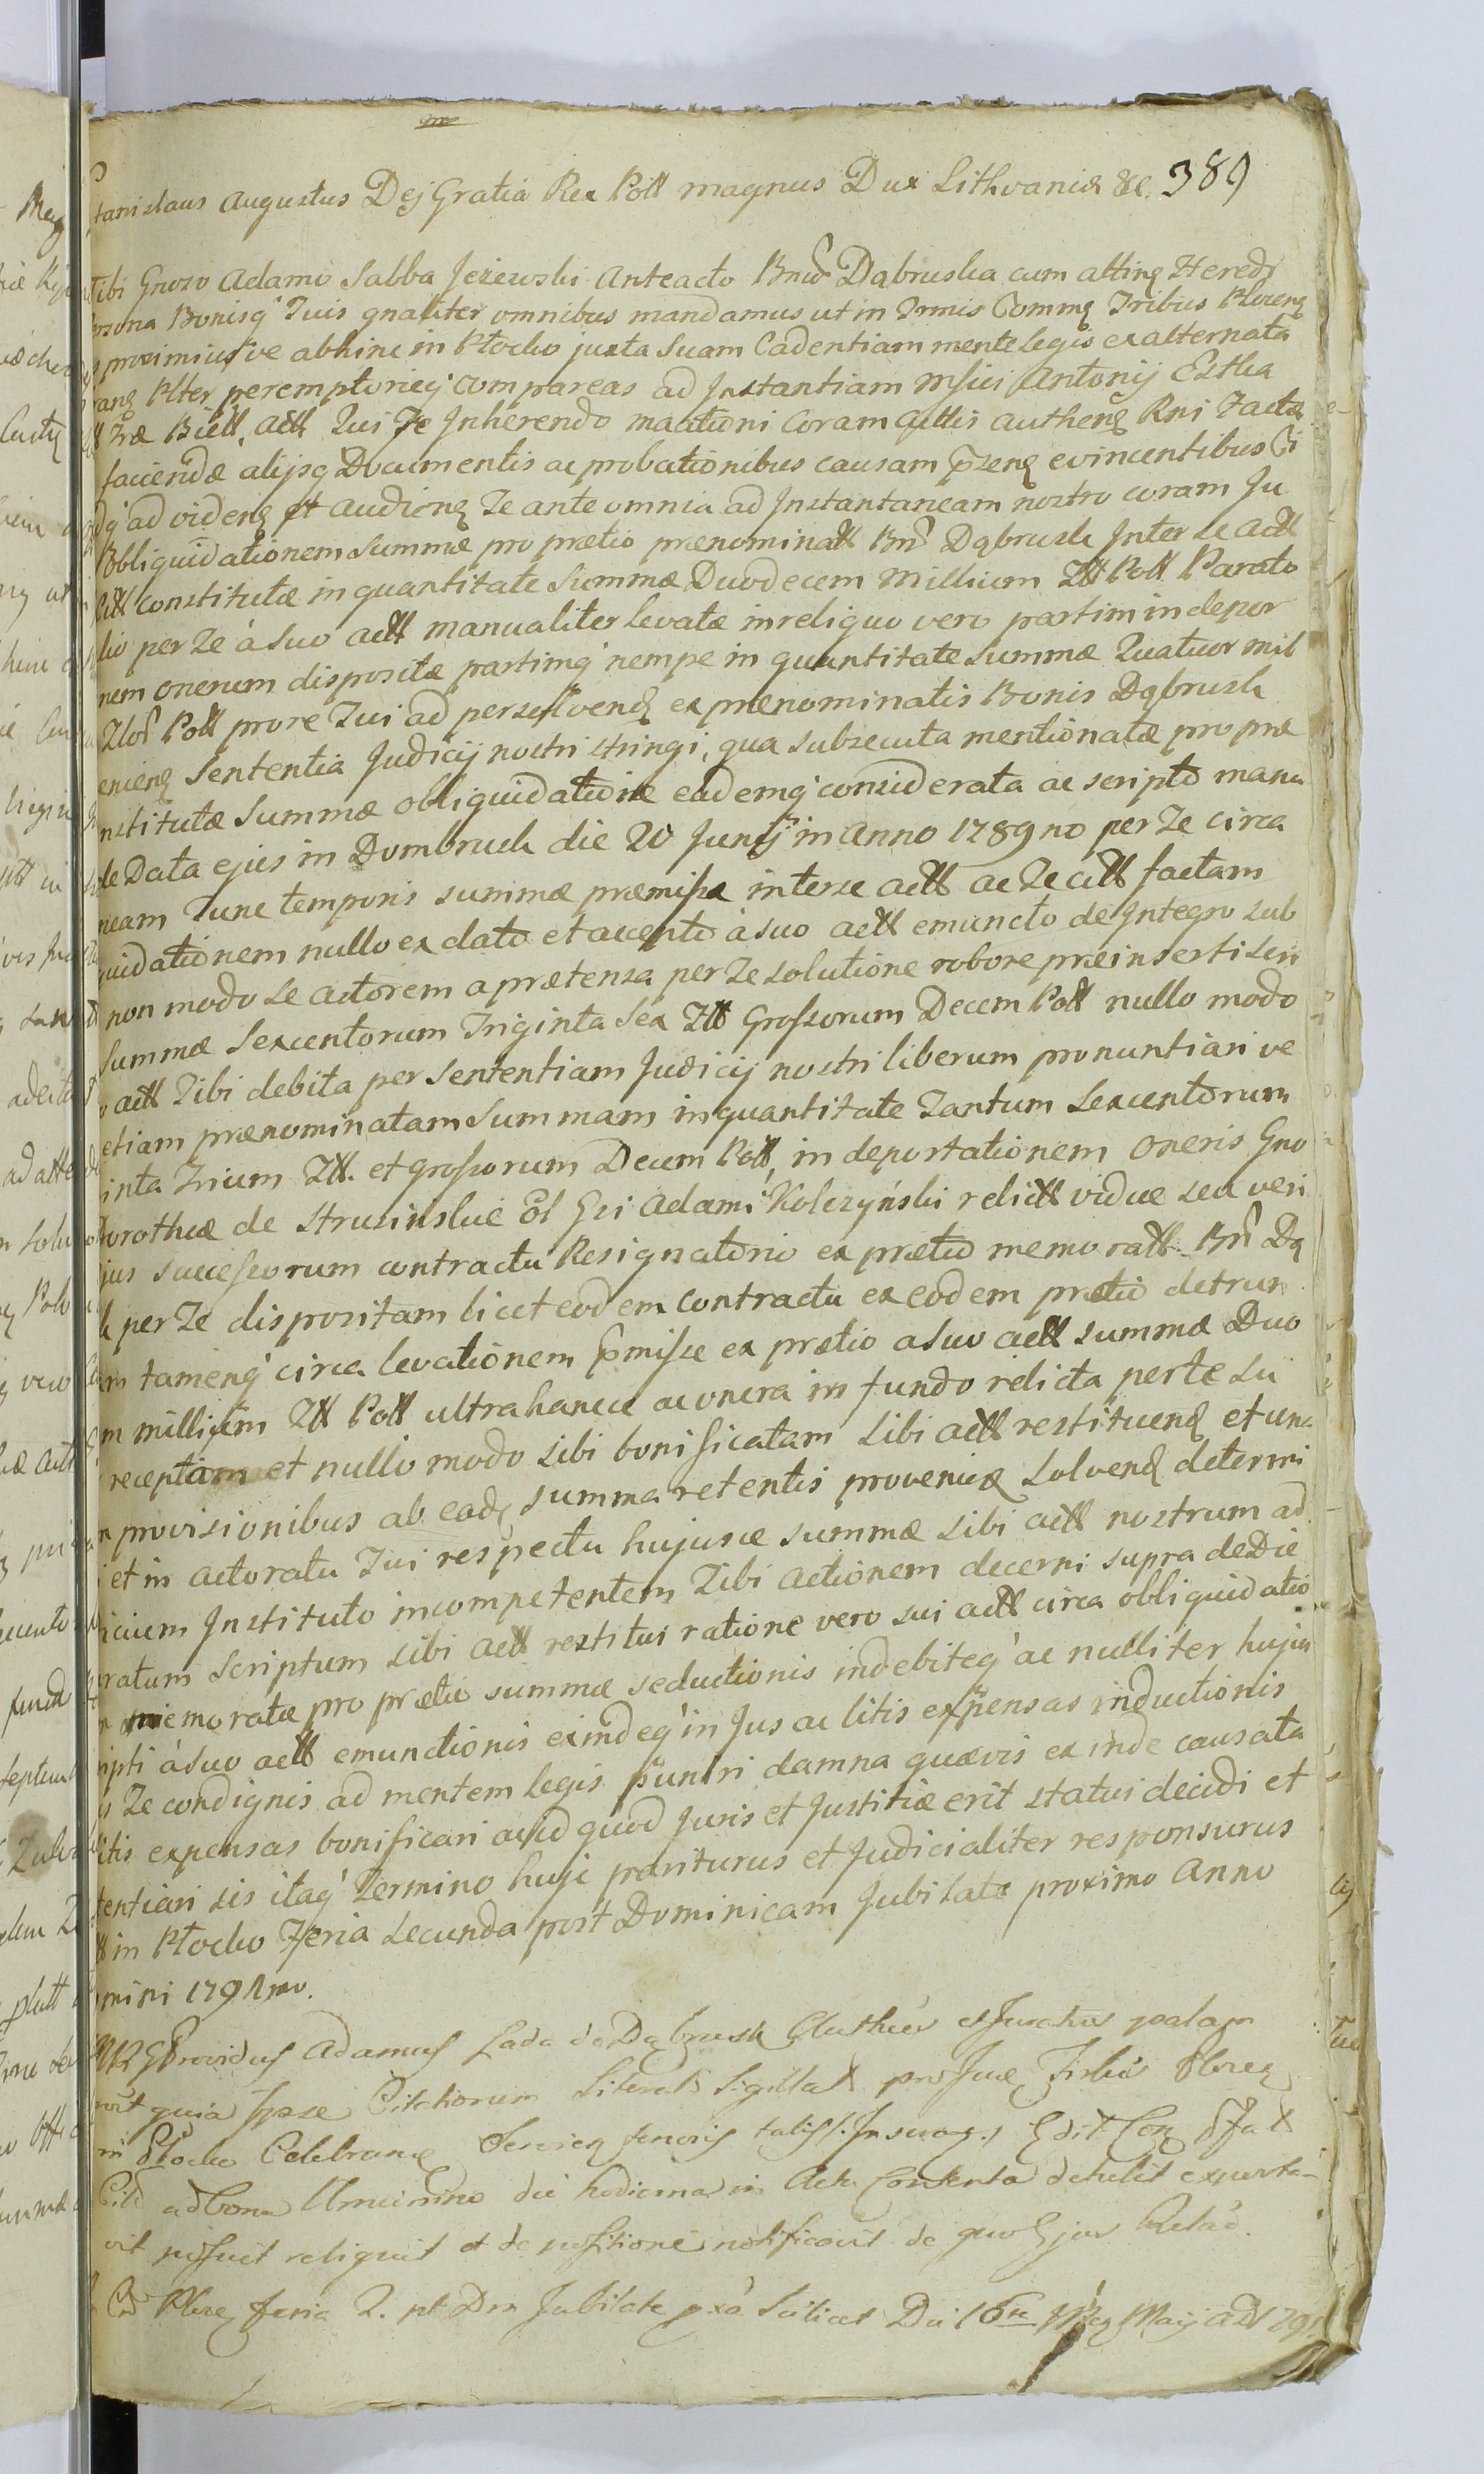 tanislaus Augustus Dej Gratia Rex Poll magnus Dux Lithvaniæ &c. 389
Tibi Gnoso Adamo Sabba Jeżewski Anteacto Bnõr Dąbruska cum atting Hered
rsona Bonisq' Tuis gnaliter omnibus mandamus ut in Trmis Comm Tribus Plocen
proximius ve abhinc in Płocko juxta Suam Cadentiam mente legis exalternata
ran Plter peremptorieq' compareas ad Instantiam Msici Antonij Estka
Træ Biell, actt Qui Te Inhærendo maationi Coram Actis Authen Rni Factæ
faciendæ alijsq Documentis ac probationibus causam pzen evincentibus Ci
dq' ad viden et audien Te ante omnia ad Instantaneam nostro coram Ju
obliquidationem summæ pro prætio prænominatt Bnõ Dąbrusk Inter se actt
Citt constitutæ in quantitate Summæ Duodecem Millium Ztt Poll Parato
lio per Te á Suo actt manualiter levatæ in reliquo vero partim in depor
nem onerum dispositæ partimq' nempe in quantitate summæ Quatuor mil
Złor Poll pro re Tui ad persolvend ex prænominatis Bonis Dąbrusk
enien Sententia Judicij nostri stringi, qua subsecuta mentionatæ pro præ
nstitutæ Summæ obliquidatione eademq' considerata ac scripto manu
de Data ejus in Dombrusk die 20 Junij in Anno 1789no per Te circa
neam Tunc temporis summæ præmissæ inter se actt ac Te citt factam
quidationem nullo ex dato et accepto à suo actt emuncto de Integro sub
non modo se actorem a prætensa per Te solutione robore præinserti scri
Summæ Sexcentorum Triginta Sex Ztt Grossorum Decem Poll nullo modo
actt Tibi debita per Sententiam Judicij nostri liberum pronuntiari ve
etiam prænominatam Summam in quantitate Tantum Sexcentorum
inta Trium Ztt. et grossorum Decem Poll, in deportationem oneris Gno
orotheæ de Strusinskie Ol Gsi Adami Kolczyński relictt viduæ seu veri
jus successorum contractu Resignatorio ex prætio memoratt Bn Dą
k per Te dispositam licet eodem contractu ex eodem prætio detrun
m tamenq' circa levationem pmissæ ex prætio a suo actt summæ Duo
m millium Ztt Poll ultra hancce ac onera in fundo relicta per te su
receptam et nullo modo sibi bonificatam sibi actt restituend et una
n provisionibus ab ead summa retentis provenien solvend determi
et in actoratu Tui respectu hujusce summæ sibi actt nostrum ad
icium Instituto incompetentem Tibi Actionem decerni supra deDie
ratum Scriptum sibi actt restitui ratione vero sui actt circa obliquidatio
memoratæ pro prætio summæ seductionis indebiteq' ac nulliter hujus
ipti à suo actt emunctionis exindeq' in Jus ac litis expensas inductionis
s Te condignis ad mentem legis puniri damna quævis exinde causata
itis expensas bonificari ac id quod Juris et Justitiæ erit statui decidi et
tentiari sis itaq' Termino huic pariturus et Judicialiter responsurus
in Płocko Feria Secunda post Dominicam Jubilate proximo Anno
mini 1791mo.
Providus Adamus Lada de Dąbrusk et Juratus palam
quia Ipse Citationum Literal Sigillat pro Plocen
in Płocko Celebran tenoris talis
ad Bona die hodierna in Contenta detulit exporta
vit posuit reliquit et de positione notificavit de quo Ejus Relac.
Plocen feria 2. pt Dm Jubilate pxa Scilicet Die 16 Maij